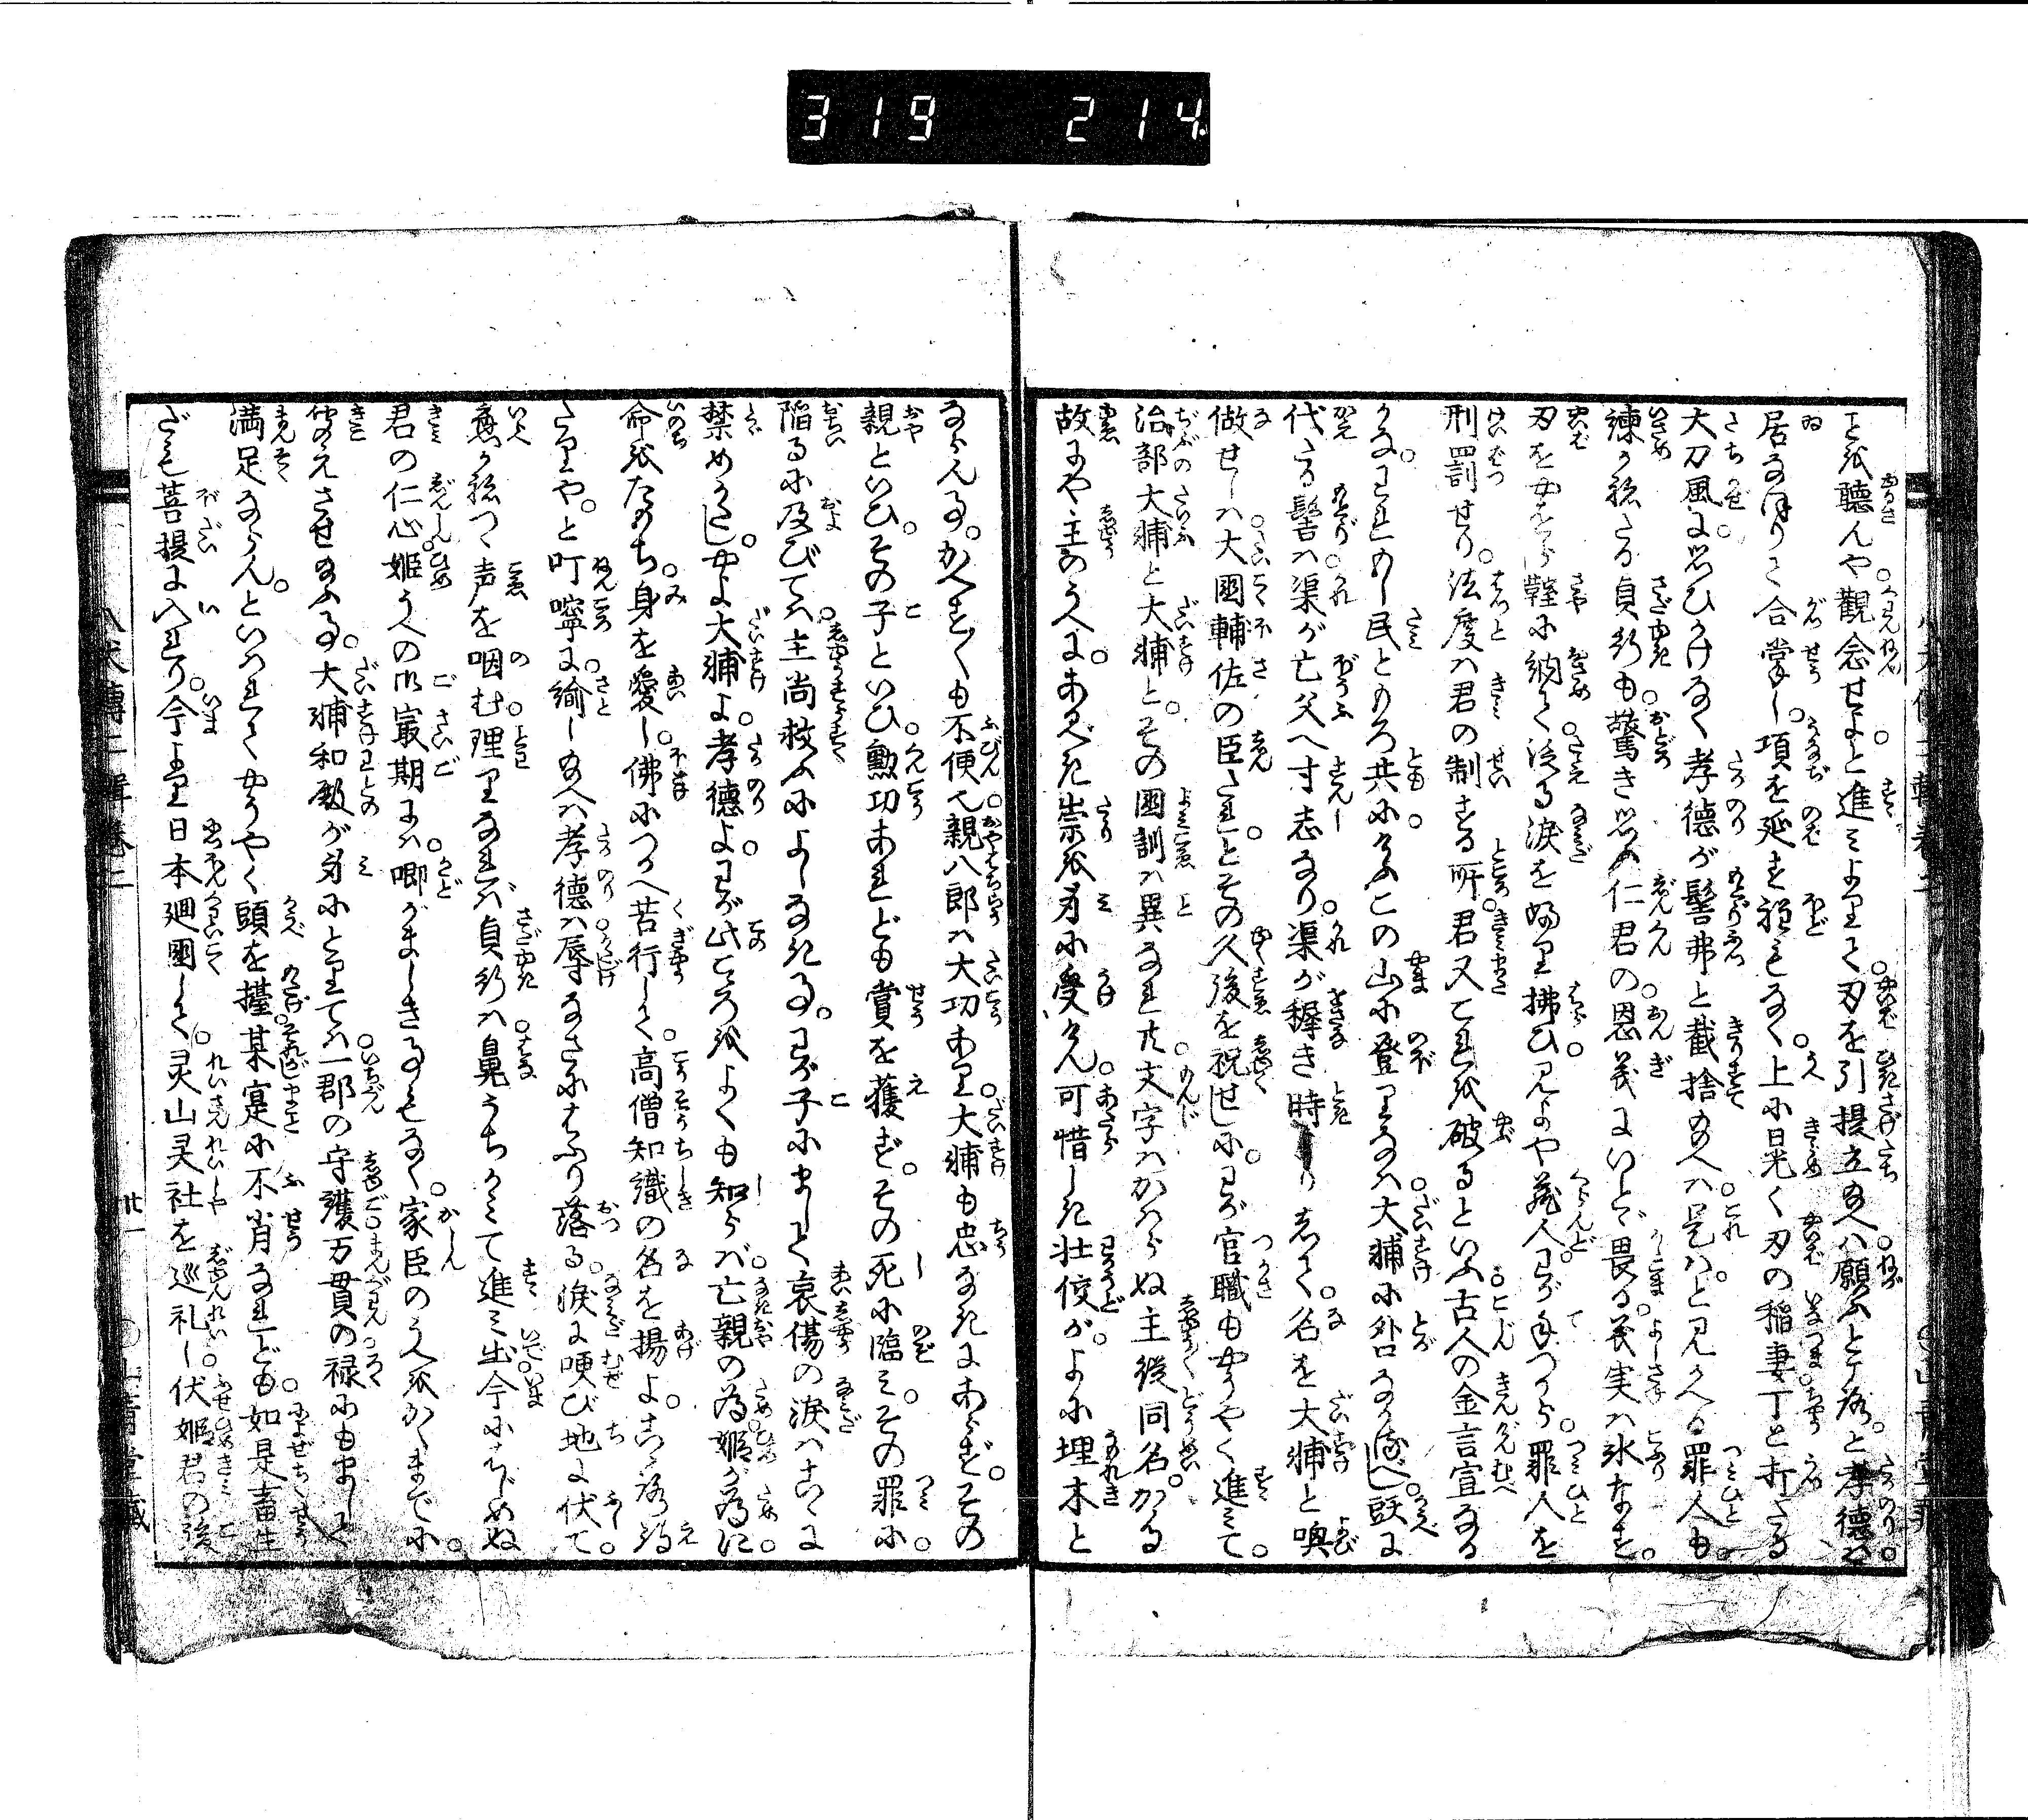 319 214
とを聴んや。観念せよと進みよりて。刃を引提立給へば。願ふところ。と孝徳は。
居なほりて合掌し。項を延す程もなく。上に晃く刃の稲妻。丁と打たる
大刀風に。思ひかけなく孝徳が髻弗と截捨給へば。是はとみかへる罪人も。
諫かねたる貞行も。驚き思ふ仁君の。恩義にいとゞ畏る。義実は氷なす。
刃をやをら鞘に納て。泛る涙をふり拂ひ。見よや蔵人。わが手づから。罪人を
刑罰せり。法度は君の制する所。君又これを破るといふ。古人の金言宜なる
かな。われのみ民ともろ共に。けふこの山に登りなば。大輔に外ロなかるべし。頭に
代たる髻は。渠が亡父へ寸志なり。渠が穉き時よりして。名を大輔と喚
做せしは。大國輔佐の臣たれ。とその久後を祝せしに。わが官職もやうやく進みて。
治部大輔と大輔と。その國訓は異なれ共。文字はかはらぬ主従同名。かゝる
故にや主のうへに。あるべき祟を身に受けん。可惜しき壮佼が。よに埋木と
ならん事。かへす〲も不便也。親八郎は大功あり。大輔も忠なきにあらず。その
親といひ。その子といひ。勲功あれども賞を獲ず。その死に臨み。その罪に。
陥るに及びては。主尚救ふによしなき事。わが子にまして哀傷の涙はこゝに
禁めかたし。やよ大輔よ。孝徳よ。わが此こゝろをよくも知らば。亡親の為姫が為に。
命をたもち。身を愛し。佛につかへ苦行して。高僧知識の名を揚よ。こゝろ得
たりや。と叮嚀に。諭し給へば孝徳は。辱なさにはふり落る。涙に哽び地に伏て。
應かねつゝ声を咽む。理りなれば貞行は。鼻うちかみて進み出。今にはじめぬ
君の仁心。姫うへの御最期には。唧がましき事もなく。家臣のうへをかくまでに。
仰えさせ給ふ事。大輔和殿が身にとりては。一郡の守護。万貫の禄にもまして
満足ならん。といはれてやうやく頭を擡。某寔に不肖なれども。如是畜生
だも菩提に入れり。今より日本廻國して。灵山灵社を巡礼し。伏姫君の後
八犬傳二輯巻二
廿一
山青堂藏